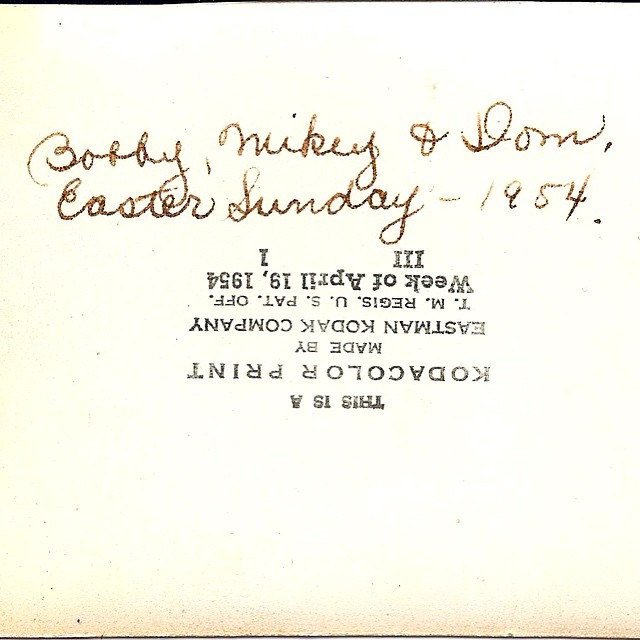 Bobby, Mikey & Dom.
Easter Sunday - 1954.
THIS IS A
KODACOLOR PRINT
MADE BY
EASTMAN KODAK COMPANY
T. M. REGIS. U. S. PAT. OFF.
Week of April 19, 1954
III I